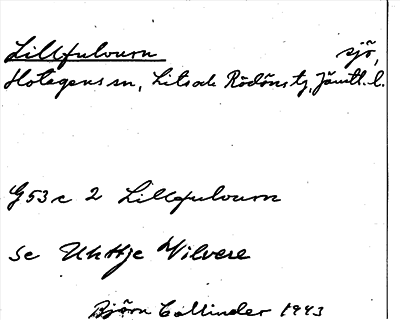 Lillfulourn sjö,
Hotagens sn, Lits och Rödöns tg, Jämtl. l.
G53c 2 Lillfulourn
Se Uhttje Vilvere
Björn Collinder 1943